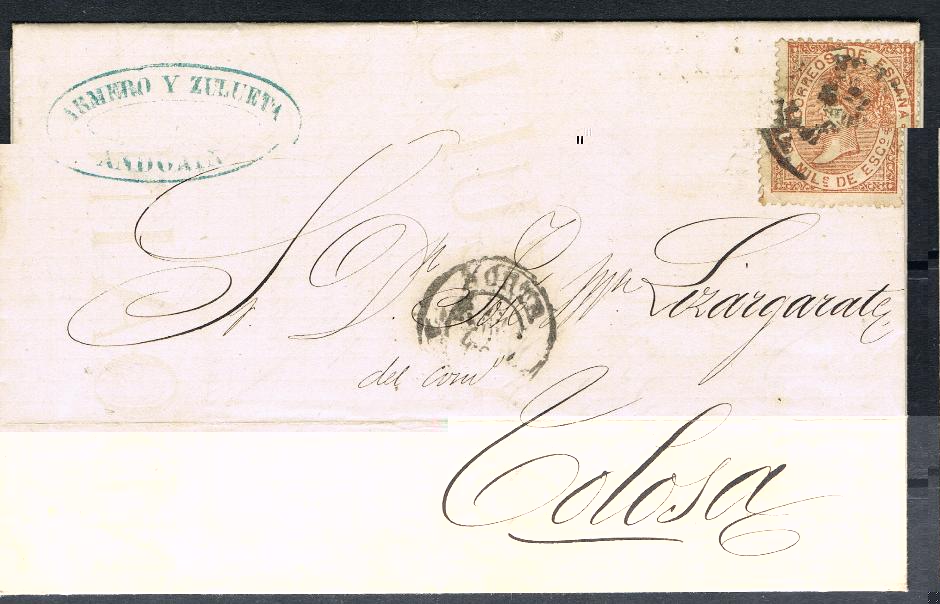 ARMERO Y ZULUETA
ANDOAIN
CORREOS DE ESPAÑA
MILS DE ESCO
Sr. Dn José Mª Lizargarate
NORTE
del comº
Tolosa